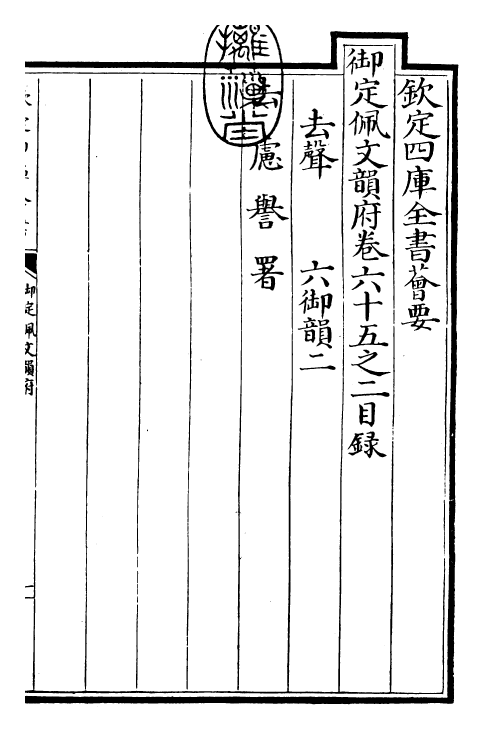 欽定四庫全書薈要
御定佩文韻府卷六十五之二目錄
去聲 六御韻二
去 慮 譽 署
御定佩文韻府